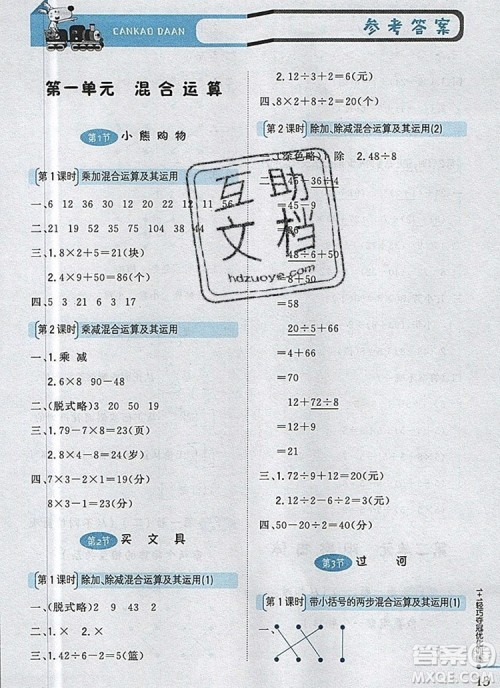 CANKAO DAAN
参考答案
第一单元 混合运算
第1节 小熊购物
第1课时 乘加混合运算及其运用
一、6 12 30 36 12 8 12 11 56
二、21 19 52 35 50 47 74
三、1.8×2+5=21(块)
2.4×9+50=86(个)
四、5 3 6 3 13 17
第2课时 乘减混合运算及其运用
一、1.乘 减
2.6×8 90-48
二、(脱式略)3 20 50 19
三、1.79-7×8=23(页)
2.8×4-8=24(岁)
四、7×3-2×1=19(分)
8×3-1×1=23(分)
第2节 买文具
第1课时 除加、除减混合运算及其运用(1)
一、(脱式略)2 9 43 2
二、1.× 2.×
三、1.42÷6-5=2(篮)
2.12÷3+2=6(元)
四、8×2+8÷2=20(分)
第2课时 除加、除减混合运算及其运用(2)
一、(涂色略)1.除 2.48÷8
二、45-36÷4
=45-9
=36
48÷6+50
=8+50
=58
20÷5+66
=4+66
=70
12+72÷8
=12+9
=21
三、1.72÷9+12=20(元)
2.12÷2-6÷2=3(元)
四、50-20÷2=40(元)
第3节 过河
第1课时 带小括号的两步混合运算及其运用
一、
互助文档
hdzuoye.com
1+1轻巧夺冠优化
答案圈
MXQE.COM